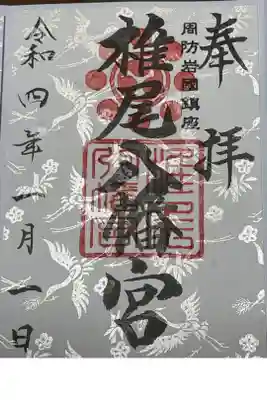 奉拝
周防岩國鎮座
椎尾八幡宮
令和四年一月一日